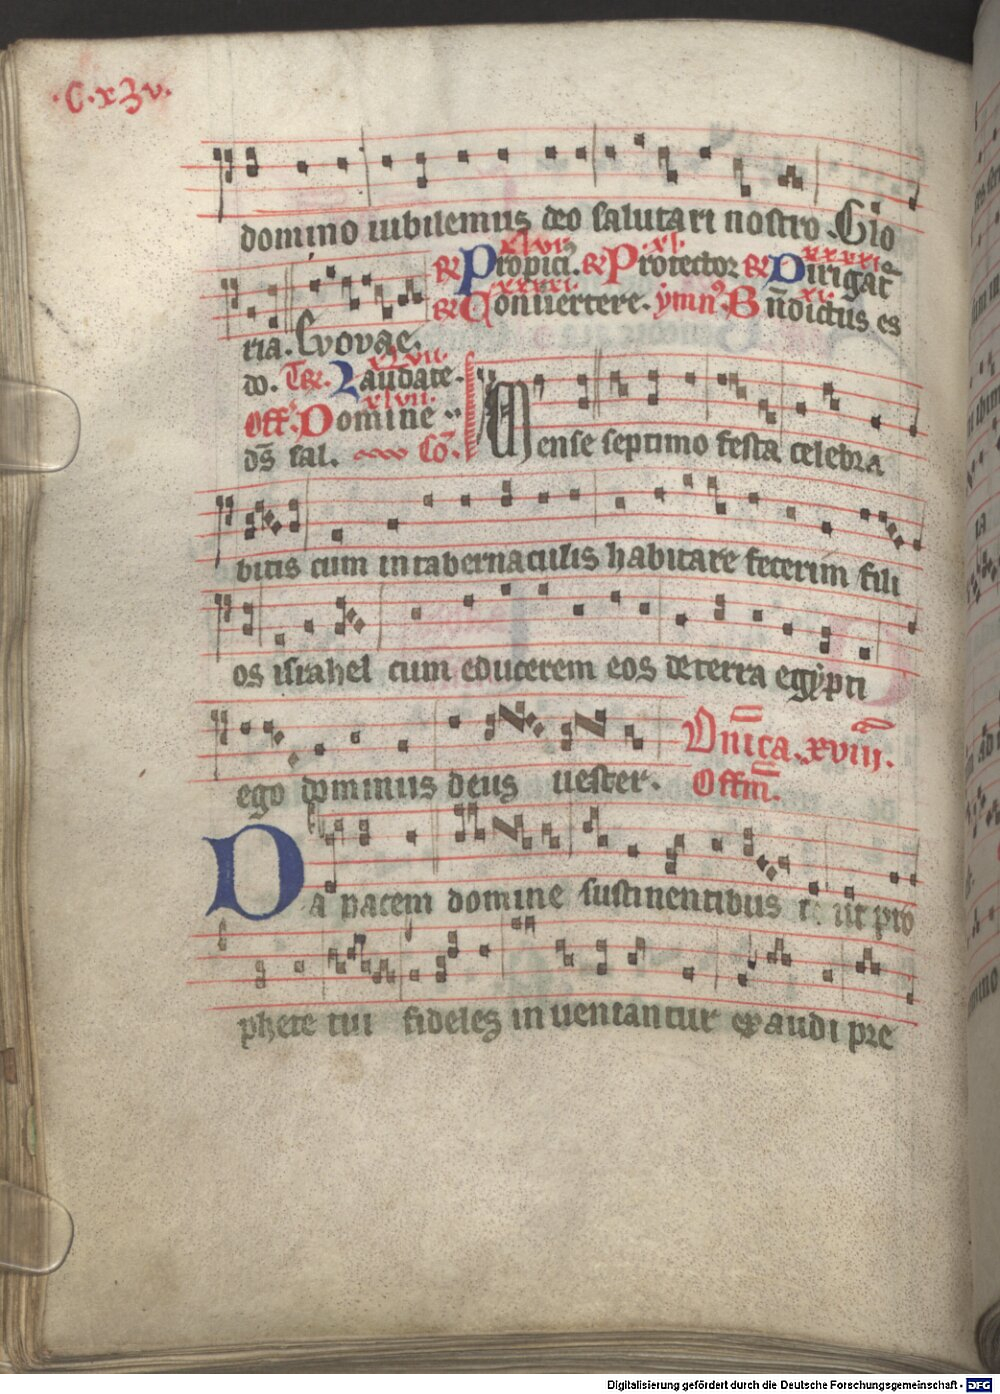 .C.xꝫv.
domino iubilemus deo salutari nostro. Glo
xlvi. xl. xxxxi
ria. Evovae. ℟ Propici. ℟ Protector ℟ Dirigat̄
xxxxi. xi.
℟ Convertere. ymn⁹. Bn̄dictus es
do. Tr̄. Laudate.
xlvii.
Off. Domine
ds̄ sal. Cō. Mense septimo festa celebra
bitis cum in tabernaculis habitare fecerim fili
os israhel cum educerem eos de terra egypti
ego dominus deus uester. Dn̄ica. xviii.
Offm̄.
Da pacem domine sustinentibus te ut pro
phete tui fideles inueniantur exaudi pre
Digitalisierung gefördert durch die Deutsche Forschungsgemeinschaft - DFG